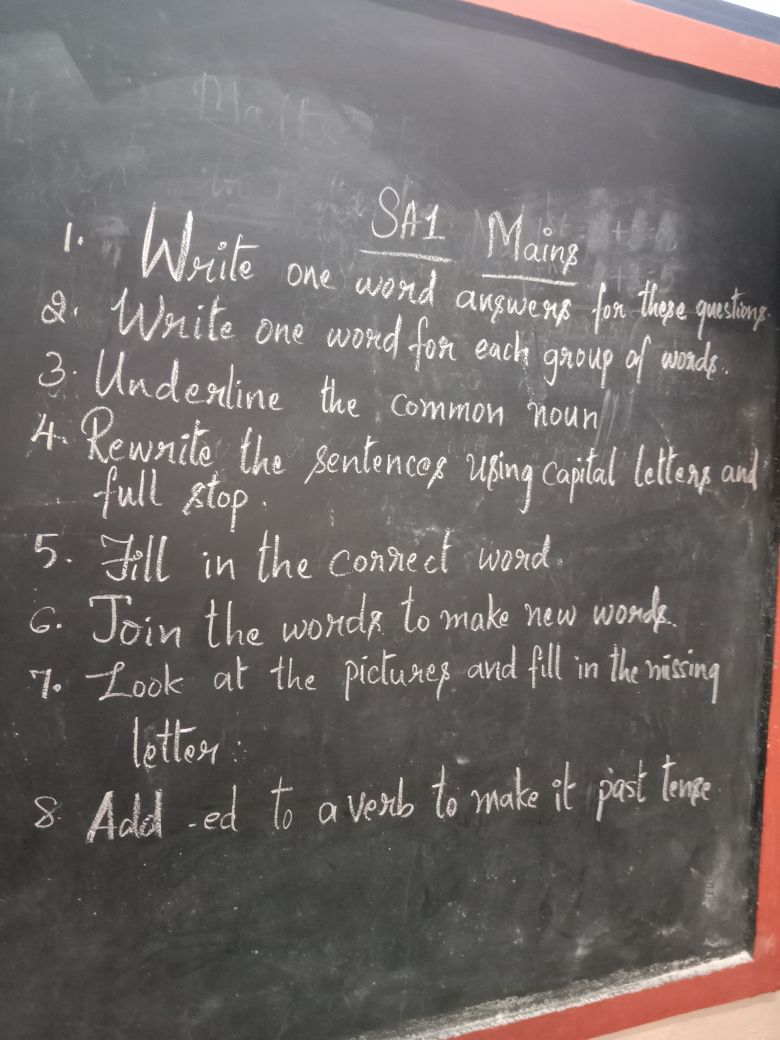 SA1 Mains
1. Write one word answers for these questions.
2. Write one word for each group of words.
3. Underline the common noun
4. Rewrite the sentences using capital letters and
full stop.
5. Fill in the correct word.
6. Join the words to make new words.
7. Look at the pictures and fill in the missing
letter:
8. Add -ed to a verb to make it past tense